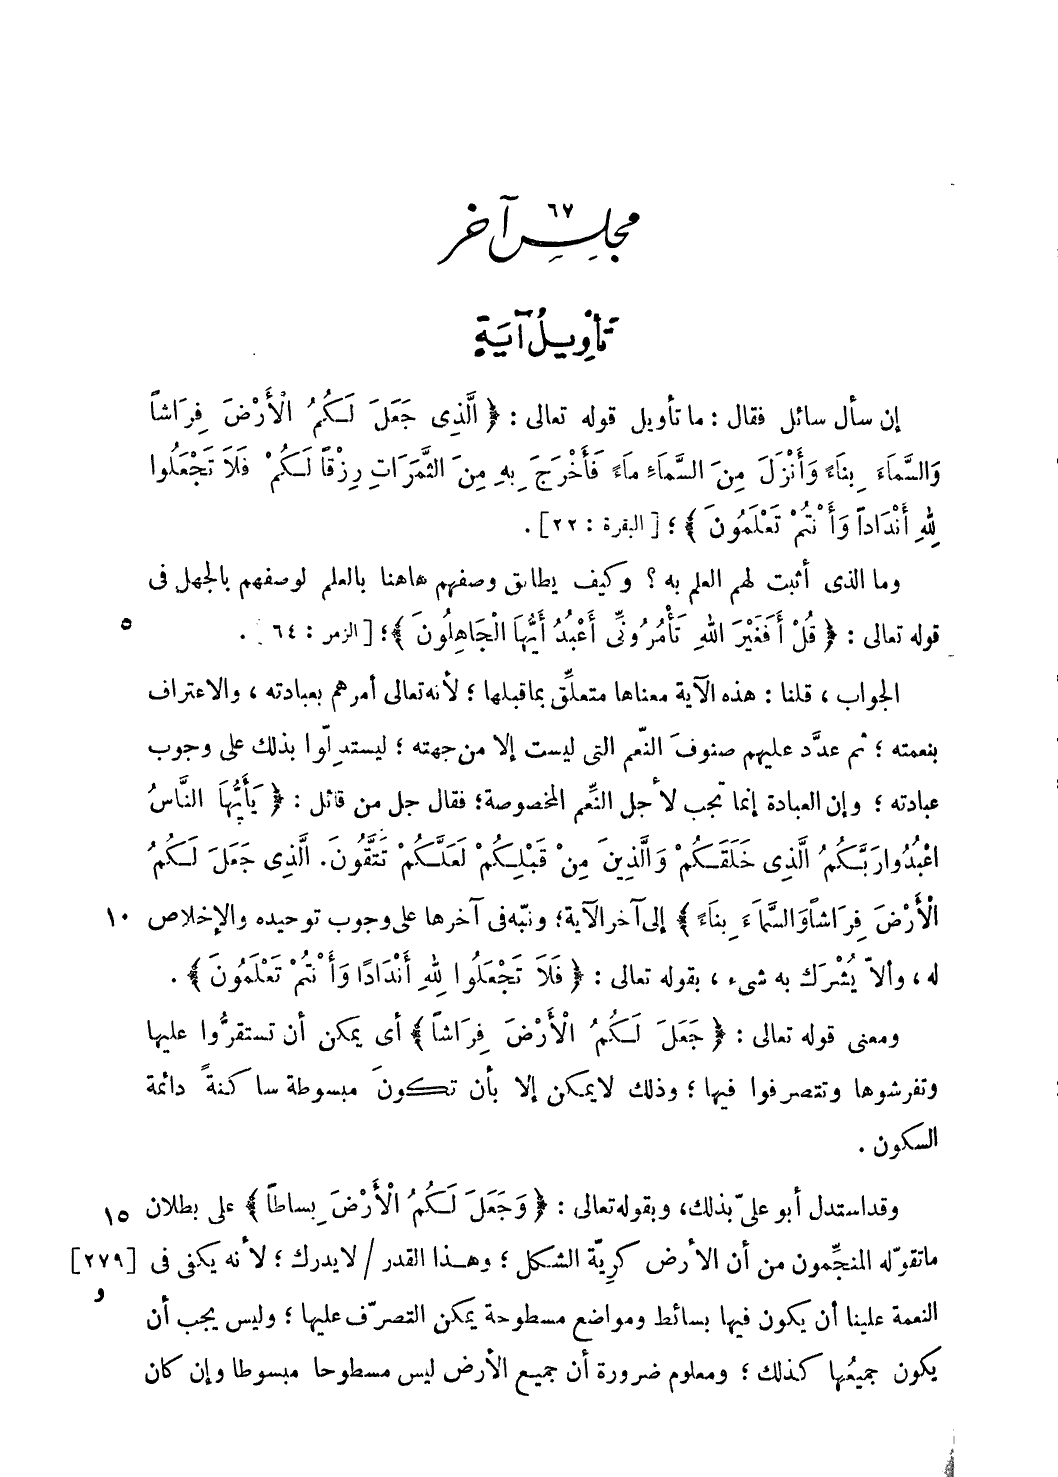 ٦٧
مجلس آخر
تأويلُ آيَةٍ
إن سأل سائل فقال : ما تأويل قوله تعالى : ﴿ الَّذِى جَعَلَ لَكُمُ الْأَرْضَ فِرَاشاً
وَالسَّمَاءَ بِنَاءً وَأَنْزَلَ مِنَ السَّمَاءِ مَاءً فَأَخْرَجَ بِهِ مِنَ الثَّمَرَاتِ رِزْقاً لَكُمْ فَلَا تَجْعَلُوا
لِلهِ أَنْدَاداً وَأَنْتُمْ تَعْلَمُونَ ﴾؛ [ البقرة : ٢٢] .
وما الذى أثبت لهم العلم به ؟ وكيف يطابق وصفهم هاهنا بالعلم لوصفهم بالجهل فى
قوله تعالى : ﴿ قُلْ أَفَغَيْرَ اللهِ تَأْمُرُونِّى أَعْبُدُ أَيُّهَا الْجَاهِلُونَ ﴾؛ [ الزمر : ٦٤ ] . ٥
الجواب ، قلنا : هذه الآية معناها متعلِّق بما قبلها ؛ لأنه تعالى أمرهم بعبادته ، والاعتراف
بنعمته ؛ ثم عدَّد عليهم صنوفَ النّعم التى ليست إلا من جهته ؛ ليستدِلّوا بذلك على وجوب
عبادته ؛ وإن العبادة إنما تجب لأجل النِّعم المخصوصة؛ فقال جل من قائل : ﴿ يَأَيُّهَا النَّاسُ
اعْبُدُوا رَبَّكُمُ الَّذِى خَلَقَكُمْ وَالَّذِينَ مِنْ قَبْلِكُمْ لَعَلَّكُمْ تَتَّقُونَ. الَّذِى جَعَلَ لَكُمُ
الْأَرْضَ فِرَاشاً وَالسَّمَاءَ بِنَاءً ﴾ إلى آخر الآية؛ ونبّه فى آخرها على وجوب توحيده والإخلاص ١٠
له ، وألاّ يُشْرَك به شىء ، بقوله تعالى : ﴿ فَلَا تَجْعَلُوا لِلهِ أَنْدَادًا وَأَنْتُمْ تَعْلَمُونَ ﴾ .
ومعنى قوله تعالى : ﴿ جَعَلَ لَكُمُ الْأَرْضَ فِرَاشاً ﴾ أى يمكن أن تستقرُّوا عليها
وتفرشوها وتتصرفوا فيها ؛ وذلك لا يمكن إلا بأن تكونَ مبسوطة ساكنةً دائمة
السكون .
وقد استدل أبو علىّ بذلك، وبقوله تعالى : ﴿ وَجَعَلَ لَكُمُ الْأَرْضَ بِساطاً ﴾ على بطلان ١٥
ما تقوّله المنجِّمون من أن الأرض كرِيّة الشكل ؛ وهذا القدر / لا يدرك ؛ لأنه يكفى فى [٢٧٩]
و
النعمة علينا أن يكون فيها بسائط ومواضع مسطوحة يمكن التصرّف عليها ؛ وليس يجب أن
يكون جميعُها كذلك ؛ ومعلوم ضرورة أن جميع الأرض ليس مسطوحا مبسوطا وإن كان